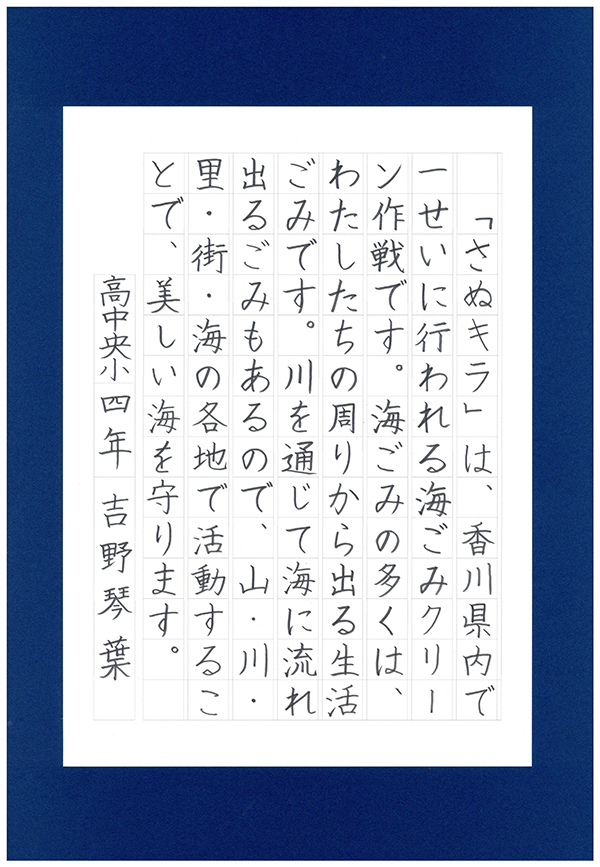 「さぬキラ」は、香川県内で
一せいに行われる海ごみクリー
ン作戦です。海ごみの多くは、
わたしたちの周りから出る生活
ごみです。川を通じて海に流れ
出るごみもあるので、山・川・
里・街・海の各地で活動するこ
とで、美しい海を守ります。
高中央小四年 吉野琴葉